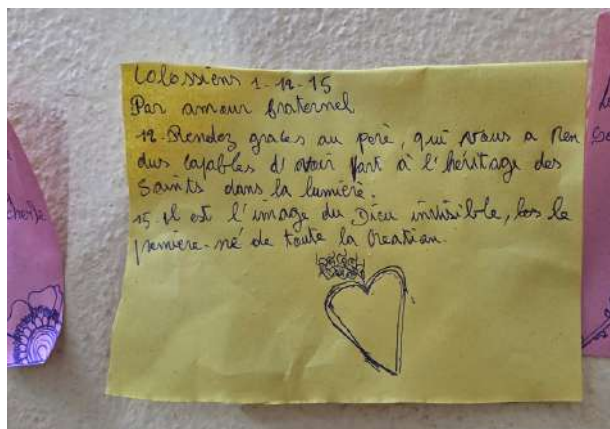 Colossiens 1-12-15
Par amour fraternel
12-Rendez graces au père, qui vous a Ren
dus capables d'avoir part à l'héritage des
Saints dans la lumière.
15 il est l'image du Dieu invisible, le
première-né de toute la Creation.